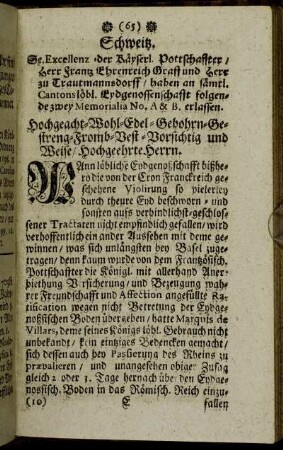 (65)
Schweitz.
Se. Excellenz der Käyserl. Pottschaffter /
Herr Frantz Ehrenreich Graff und Herr
zu Trautmannsdorff / haben an sämtl.
Cantons löbl. Eydgenossenschafft folgen-
de zwey Memorialia No. A & B. erlassen.
Hochgeacht-Wohl-Edel-Gebohrn-Ge-
streng-Fromb-Vest-Vorsichtig und
Weise / Hochgeehrte Herrn.
WAnn löbliche Eydgenoßschafft bißhe-
ro die von der Cron Franckreich ge-
schehene Violirung so vielerley
durch theure Eyd beschworn- und
sonsten aufs verbindlichst-geschlos-
sener Tractaten nicht empfindlich gefallen / wird
verhoffentlich ein ander Aussehen mit deme ge-
winnen / was sich unlängsten bey Basel zuge-
tragen / denn kaum wurde von dem Frantzösisch.
Pottschaffter die Königl. mit allerhand Aner-
biethung Versicherung / und Bezeugung wah-
rer Freundschafft und Affection angefüllte Ra-
tification wegen nicht Betretung der Eydge-
nosischen Boden übergeben / hatte Marquis de
Villars, deme seines Königs löbl. Gebrauch nicht
unbekandt / kein eintziges Bedencken gemacht /
sich dessen auch bey Passierung des Rheins zu
prævalieren / und unangesehen obiger Zusag
gleich 2 oder 3. Tage hernach über den Eydge-
nossisch. Boden in das Römisch. Reich einzu-
(10) E fallen